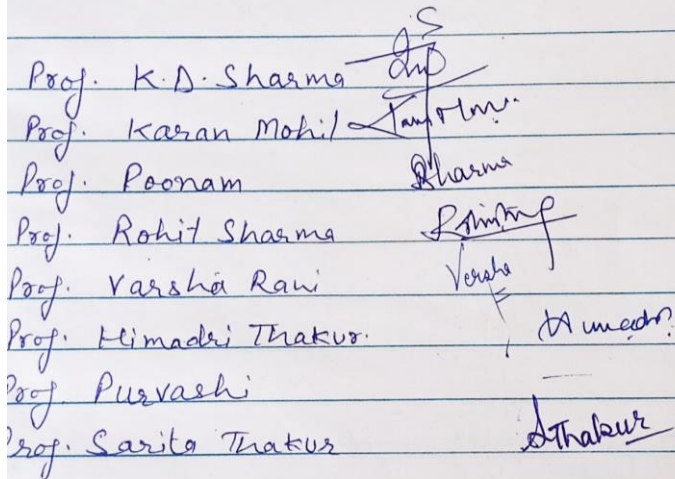 Prof. K.D. Sharma
Prof. Karan Mohil
Prof. Poonam Sharma
Prof. Rohit Sharma
Prof. Varsha Rani Versha
Prof. Himadri Thakur.
Prof. Purvashi
Prof. Sarita Thakur SThakur